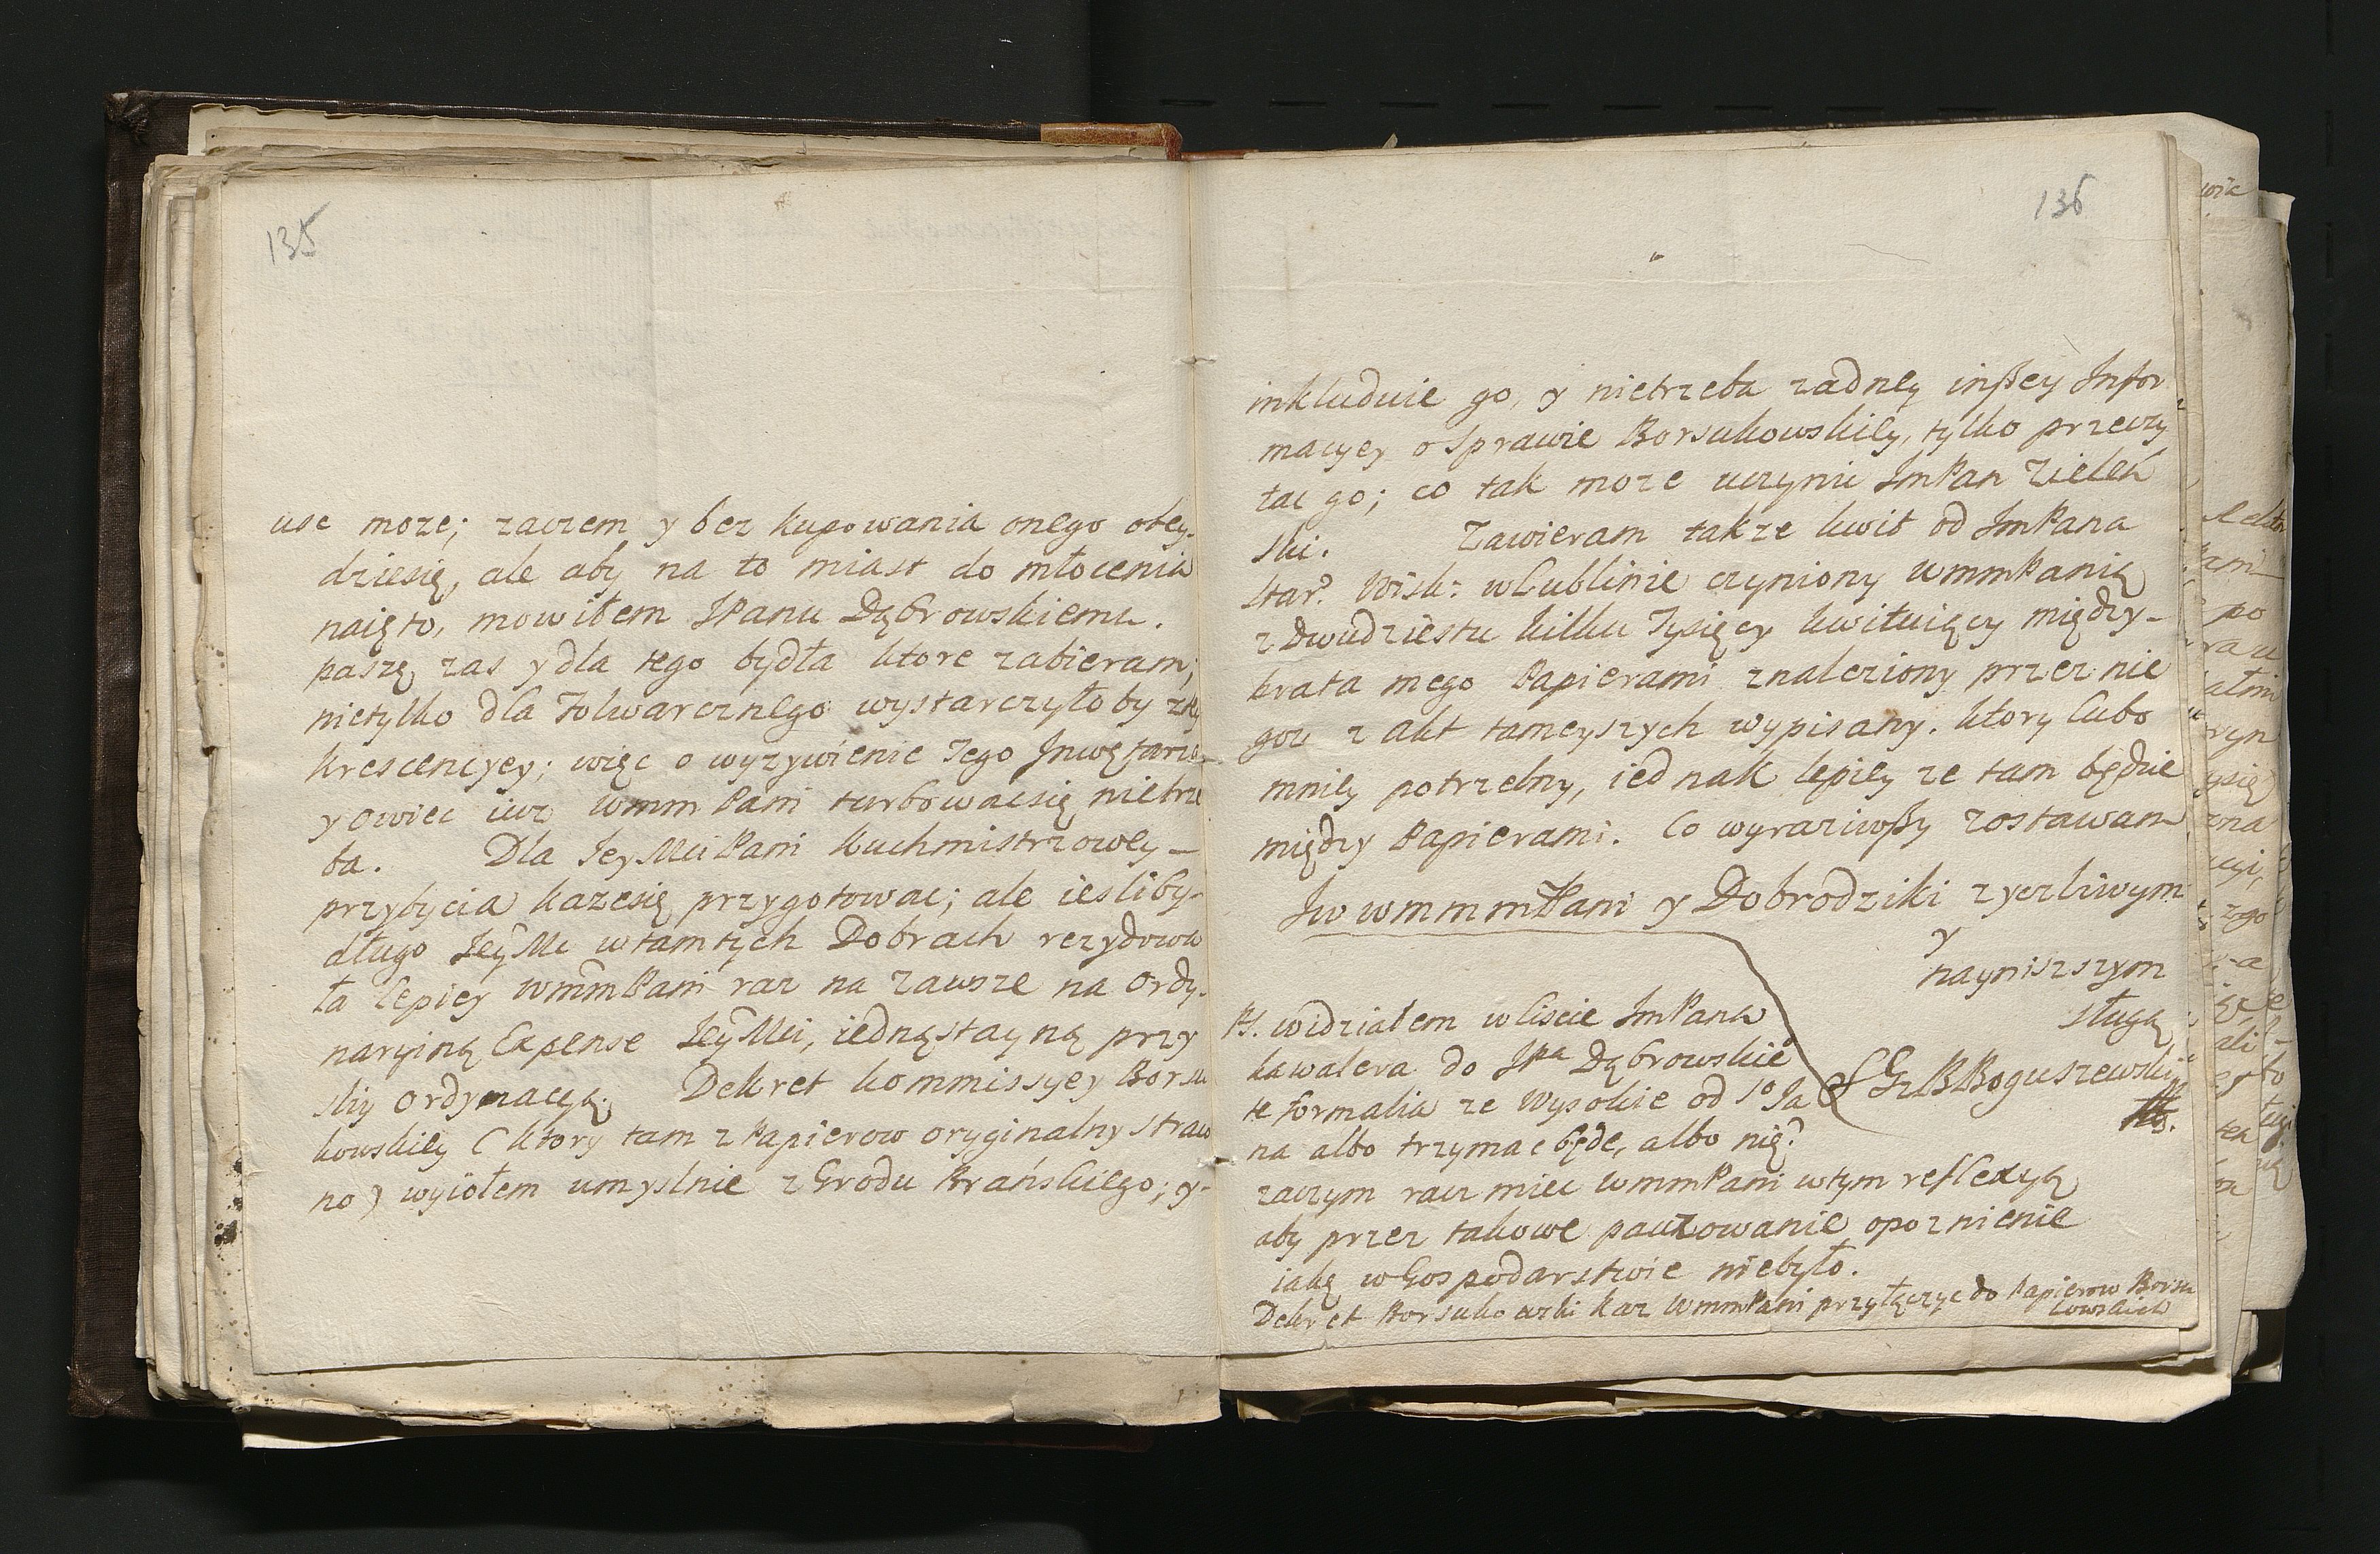 135
use moze; zaczem y bez kupowania onego obey-
dziesię, ale aby na to miast do młocenia
naięto, mowiłem JPanu Dąbrowskiemu.
paszę zas y dla tego bydła ktore zabieram;
nietylko dla Folwarcznego wystarczyłoby z tey
krescencyey; więc o wyzywienie Tego Inwętarza
y owiec iuz wmm Pani turbowacsię nietrze
ba. Dla JeyMci Pani Kuchmistrzowey –
przybycia kazesię przygotowac; ale iesliby-
długo JeyMc w tamtych Dobrach rezydowa
ła lepiey wmm Pani raz na zawsze na ordy-
naryiną Expense JeyMci, iednąstayną przy
sliy ordynacyą. Dekret kommissyey Borsu
kowskiey (ktory tam z Papierow oryginalny straco
no) wyiołem umyslnie z Grodu Brańskiego; y-
136
inkluduie go, y nietrzeba zadney inßey Infor
macyey o Sprawie Borsukowskiey, tylko przeczy
tac go; co tak moze uczynic JmPan Zieleń
ski. Zawieram takze kwit od JmPana
Star. Wisk: w Lublinie czyniony wmmPanią
z Dwudziestu kilku Tysięcy kwituiący między-
brata mego Papierami znaleziony przez nie
goz z akt tameyszych wypisany. ktory lubo
mniey potrzebny, iednak lepiey ze tam będzie
między Papierami. Co wyraziwßy zostawam
Jw wmmmPani y Dobrodziki zyczliwym
y
nayniszszym
sługą
GzBBoguszewski
PS. widziałem w liscie JmPana
kawalera do JPa Dąbrowskie
te formalia ze Wysokie od So Ja
na albo trzymac będe, albo nię?
zaczym racz miec wmmPani w tym reflexyą
aby przez takowe pauzowanie opoznienie
iakę w Gospodarstwie niebyło.
Dekret Borsukowski kaz wmmPani przyłączyc do Papierow Borsu
kowskich